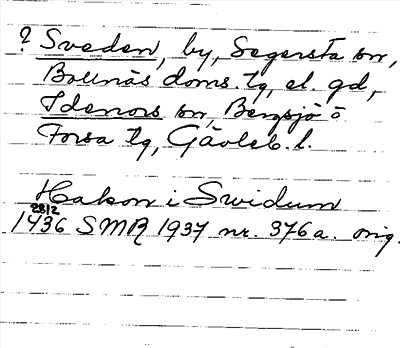 ? Sveden, by, Segersta sn,
Bollnäs doms. tg, el. gd,
Idenors sn, Bergsjö o
Forsa tg, Gävleb. l.
Hakon i Swidum
28/2
1436 SMR 1937 nr. 376a. orig.